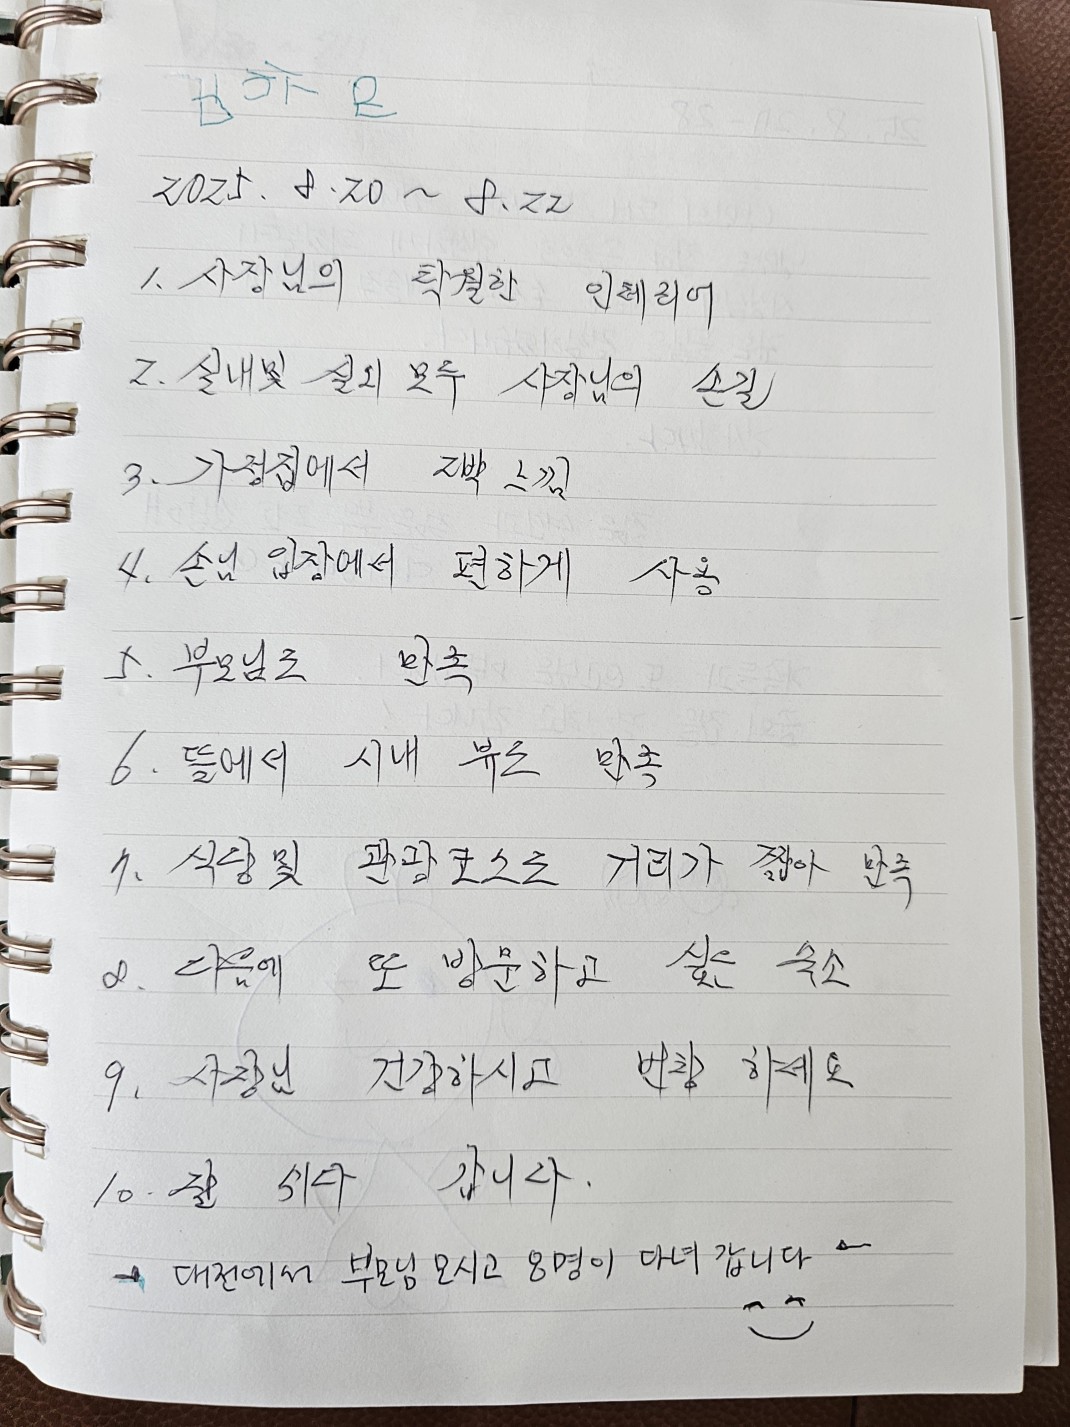 2025. 8.20 ~ 8.22
1. 사장님의 탁월한 인테리어
2. 실내및 실외 모두 사장님의 손길
3. 가정집에서 1박 느낌
4. 손님 입장에서 편하게 사용
5. 부모님도 만족
6. 뜰에서 시내 뷰도 만족
7. 식당및 관광코스도 거리가 짧아 만족
8. 다음에 또 방문하고 싶은 숙소
9. 사장님 건강하시고 번창 하세요
10. 잘 쉬다 갑니다.
→ 대전에서 부모님 모시고 8명이 다녀 갑니다 ←